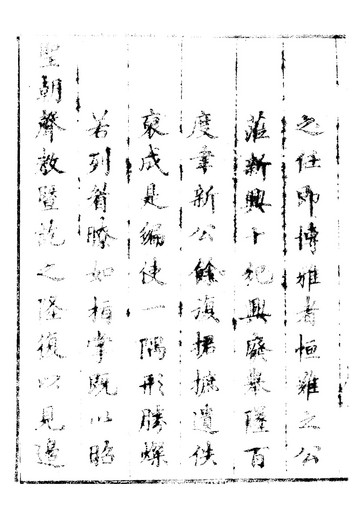 之任即博雅者恒難之公
蒞新興十祀興廢舉墜百
度事新公餘旅捃摭遺佚
裒成是編使一隅形勝燦
若列眉瞭如指掌既以昭
聖朝聲教暨訖之隆復以見邊